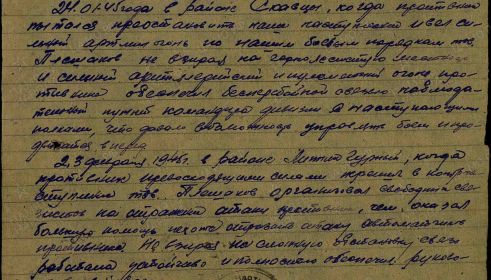 24.01.45 года в районе Скавцы, когда противник
пытался приостановить наше наступление и вел си-
льный артил. огонь по нашим боевым порядкам тов.
Плешаков не взирая на горнолесистую местность
и сильный артиллерийский и пулеметный огонь про-
тивника обеспечил бесперебойной связью наблюда-
тельный пункт командира дивизии с наступающими
полками, что дало возможность управлять боем и про-
двигаться вперед.
23 февраля 1945 г. в районе когда
противник превосходящими силами перешел в контрна-
ступление тов. Плешаков организовал свободных свя-
зистов на отражение атаки противника, чем оказал
большую помощь пехоте отразить атаку автоматчиков
противника. Не взирая на сложную обстановку связь
работала устойчиво и полностью обеспечила руково-